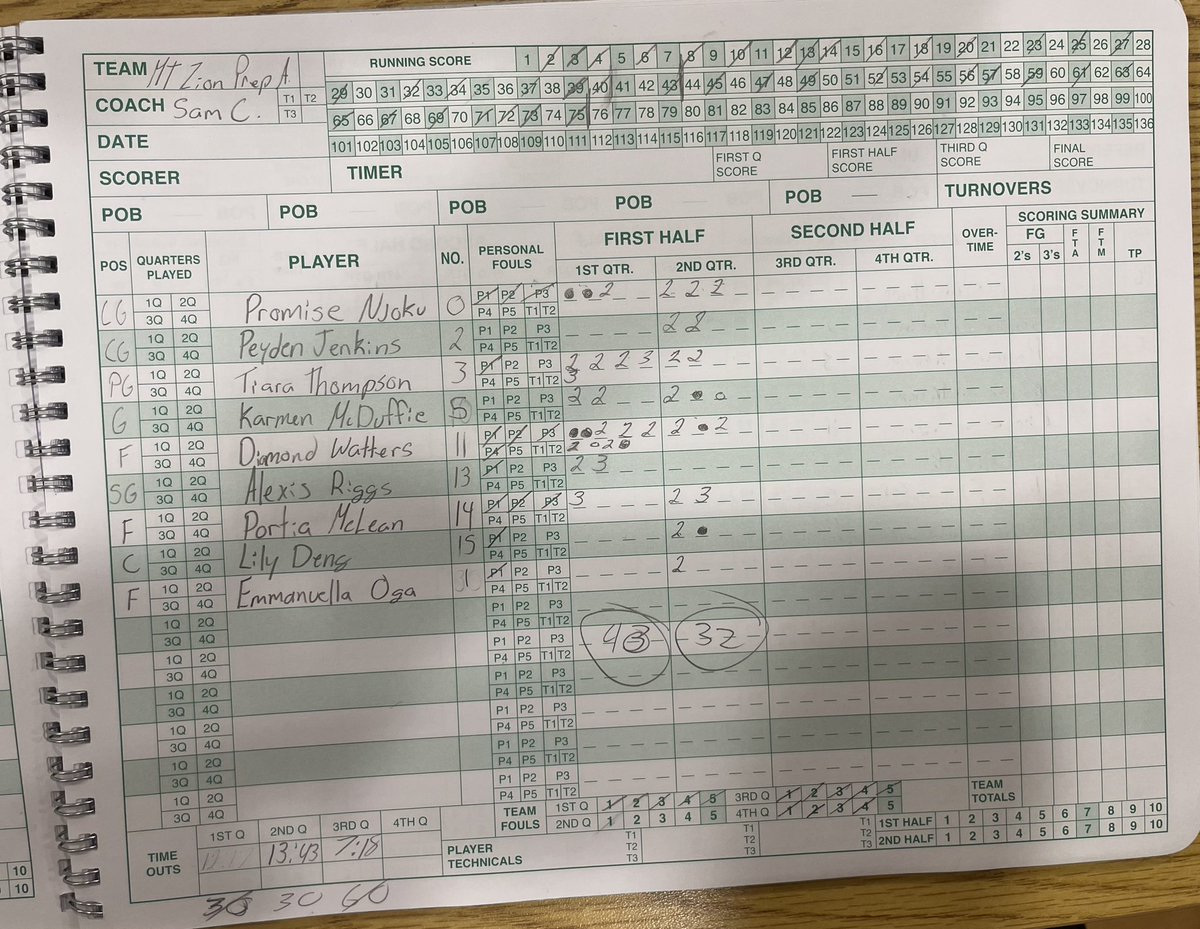 TEAM Mt Zion Prep A. RUNNING SCORE 1 2 3 4 5 6 7 8 9 10 11 12 13 14 15 16 17 18 19 20 21 22 23 24 25 26 27 28
COACH Sam C. T1 T2 T3 29 30 31 32 33 34 35 36 37 38 39 40 41 42 43 44 45 46 47 48 49 50 51 52 53 54 55 56 57 58 59 60 61 62 63 64
65 66 67 68 69 70 71 72 73 74 75 76 77 78 79 80 81 82 83 84 85 86 87 88 89 90 91 92 93 94 95 96 97 98 99 100
DATE 101 102 103 104 105 106 107 108 109 110 111 112 113 114 115 116 117 118 119 120 121 122 123 124 125 126 127 128 129 130 131 132 133 134 135 136
SCORER TIMER FIRST Q SCORE FIRST HALF SCORE THIRD Q SCORE FINAL SCORE
POB POB POB POB POB TURNOVERS
POS QUARTERS PLAYED PLAYER NO. PERSONAL FOULS FIRST HALF SECOND HALF OVER-TIME SCORING SUMMARY
1ST QTR. 2ND QTR. 3RD QTR. 4TH QTR. FG 2's 3's FTA FTM TP
CG 1Q 2Q Promise Njoku 0 P1 P2 P3 2 2 2 2
3Q 4Q P4 P5 T1 T2
CG 1Q 2Q Peyden Jenkins 2 P1 P2 P3 2 2
3Q 4Q P4 P5 T1 T2
PG 1Q 2Q Tiara Thompson 3 P1 P2 P3 2 2 2 3 2 2
3Q 4Q P4 P5 T1 T2 3
G 1Q 2Q Karmen McDuffie 5 P1 P2 P3 2 2 2
3Q 4Q P4 P5 T1 T2
F 1Q 2Q Diamond Watters 11 P1 P2 P3 2 2 2 2 2
3Q 4Q P4 P5 T1 T2 2 2
SG 1Q 2Q Alexis Riggs 13 P1 P2 P3 2 3
3Q 4Q P4 P5 T1 T2
F 1Q 2Q Portia McLean 14 P1 P2 P3 3 2 3
3Q 4Q P4 P5 T1 T2
C 1Q 2Q Lily Deng 15 P1 P2 P3 2
3Q 4Q P4 P5 T1 T2
F 1Q 2Q Emmanuella Oga 31 P1 P2 P3 2
3Q 4Q P4 P5 T1 T2
1Q 2Q P1 P2 P3
3Q 4Q P4 P5 T1 T2
1Q 2Q P1 P2 P3 43 32
3Q 4Q P4 P5 T1 T2
1Q 2Q P1 P2 P3
3Q 4Q P4 P5 T1 T2
1Q 2Q P1 P2 P3
3Q 4Q P4 P5 T1 T2
1Q 2Q P1 P2 P3
3Q 4Q P4 P5 T1 T2
1Q 2Q P1 P2 P3
3Q 4Q P4 P5 T1 T2
TEAM FOULS 1ST Q 1 2 3 4 5 3RD Q 1 2 3 4 5 TEAM TOTALS
2ND Q 1 2 3 4 5 4TH Q 1 2 3 4 5
TIME OUTS 1ST Q 2ND Q 3RD Q 4TH Q PLAYER TECHNICALS T1 T2 T3 T1 T2 T3 T1 T2 T3 1ST HALF 1 2 3 4 5 6 7 8 9 10
13:43 7:18 2ND HALF 1 2 3 4 5 6 7 8 9 10
30 30 60
10
10